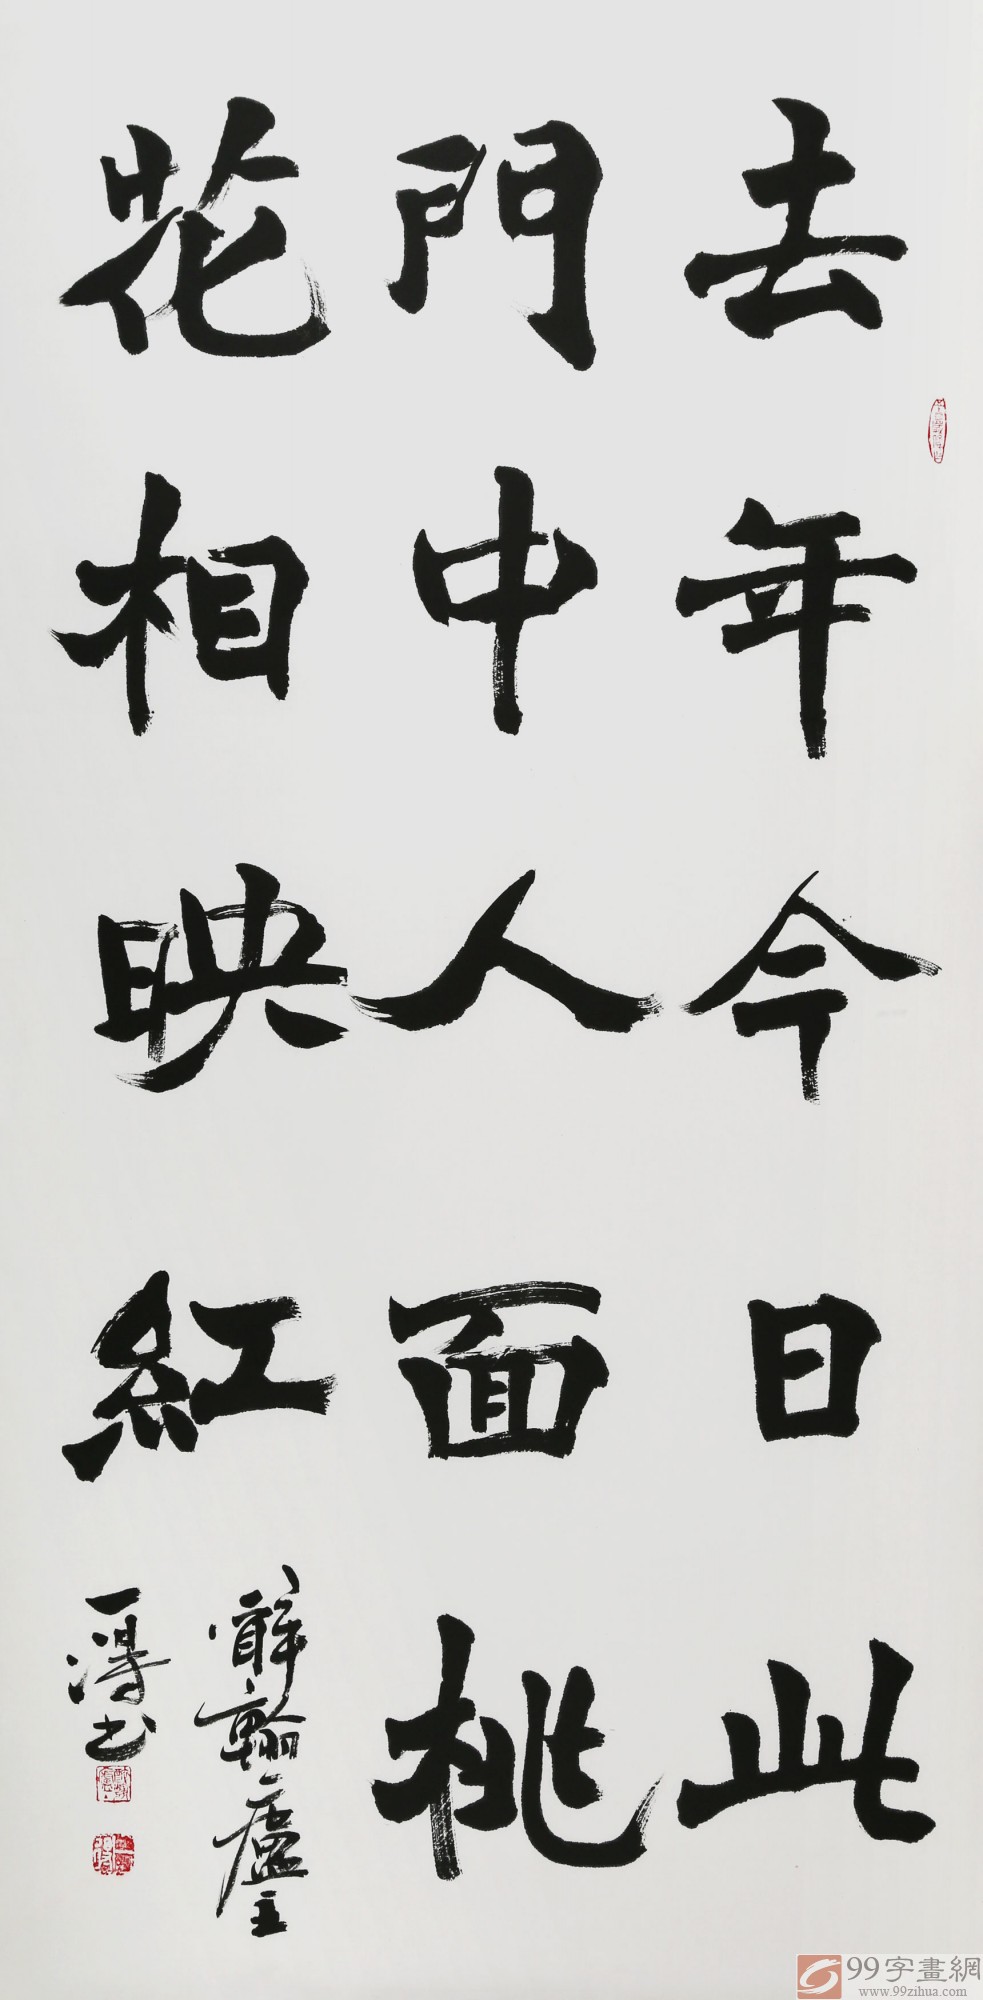 去年今日此
門中人面桃
花相映紅
一得書
99字畫網
www.99zihua.com